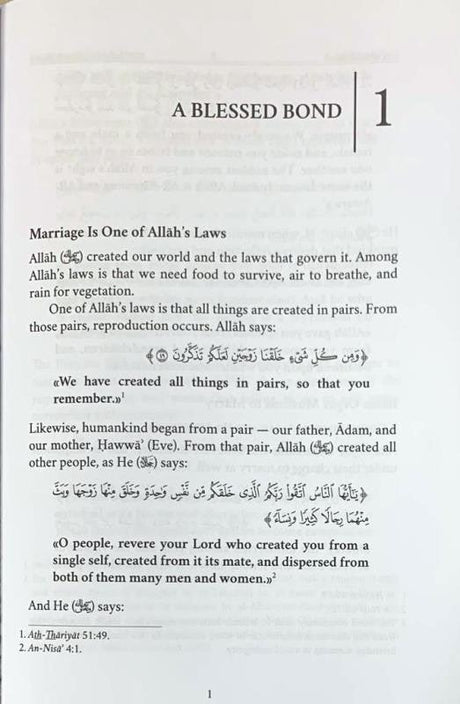 A BLESSED BOND
1
Marriage Is One of Allāh's Laws
Allāh (ﷻ) created our world and the laws that govern it. Among
Allāh's laws is that we need food to survive, air to breathe, and
rain for vegetation.
One of Allāh's laws is that all things are created in pairs. From
those pairs, reproduction occurs. Allāh says:
﴿وَمِن كُلِّ شَىْءٍ خَلَقْنَا زَوْجَيْنِ لَعَلَّكُمْ تَذَكَّرُونَ ٤٩﴾
«We have created all things in pairs, so that you
remember.»1
Likewise, humankind began from a pair — our father, Ādam, and
our mother, Ḥawwā' (Eve). From that pair, Allāh (ﷻ) created all
other people, as He (ﷻ) says:
﴿يَٰٓأَيُّهَا ٱلنَّاسُ ٱتَّقُوا۟ رَبَّكُمُ ٱلَّذِى خَلَقَكُم مِّن نَّفْسٍ وَٰحِدَةٍ وَخَلَقَ مِنْهَا زَوْجَهَا وَبَثَّ
مِنْهُمَا رِجَالًا كَثِيرًا وَنِسَآءً﴾
«O people, revere your Lord who created you from a
single self, created from it its mate, and dispersed from
both of them many men and women.»2
And He (ﷻ) says:
1. Ath-Thāriyāt 51:49.
2. An-Nisā' 4:1.
1